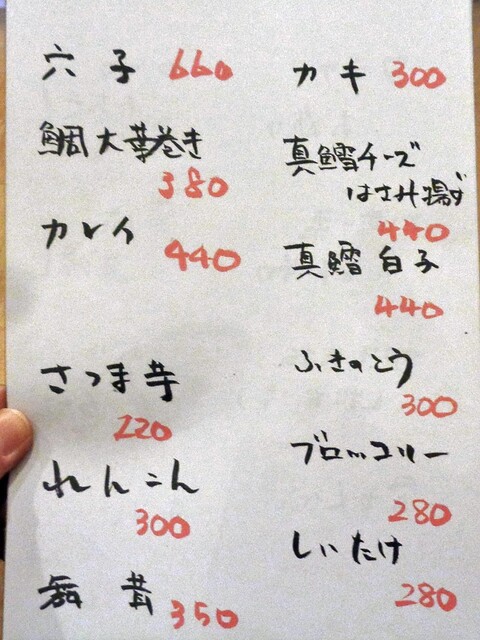 穴子 660
鯛大葉巻き
380
カレイ
440
さつま芋
220
れんこん
300
舞茸 350
カキ 300
真鱈チーズ
はさみ揚げ
440
真鱈白子
440
ふきのとう
300
ブロッコリー
280
しいたけ
280